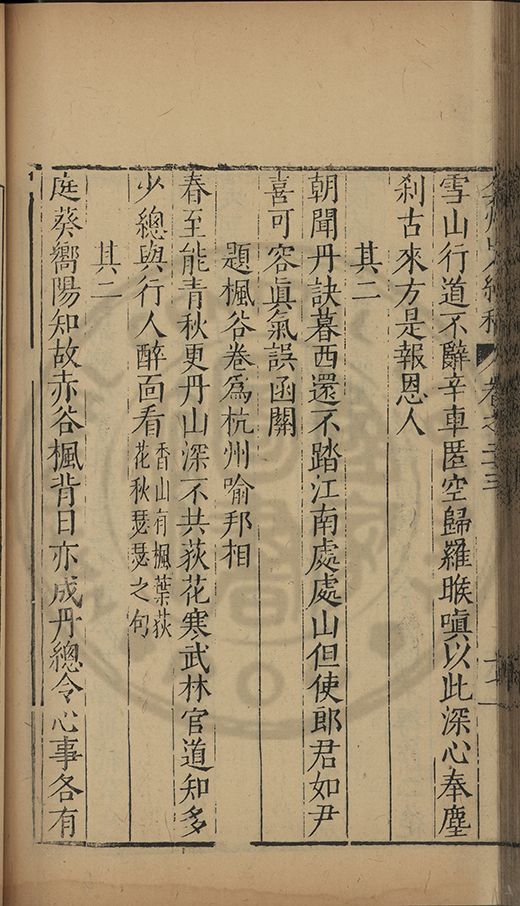 雪山行道不辭辛車匿空歸羅睺嗔以此深心奉塵
刹古來方是報恩人
其二
朝聞丹訣暮西還不踏江南處處山但使郎君如尹
喜可容眞氣誤函關
題楓谷卷爲杭州喻邦相
春至能青秋更丹山深不共荻花寒武林官道知多
少總與行人醉面看香山有楓葉荻
花秋瑟瑟之句
其二
庭葵嚮陽知故赤谷楓背日亦成丹總令心事各有